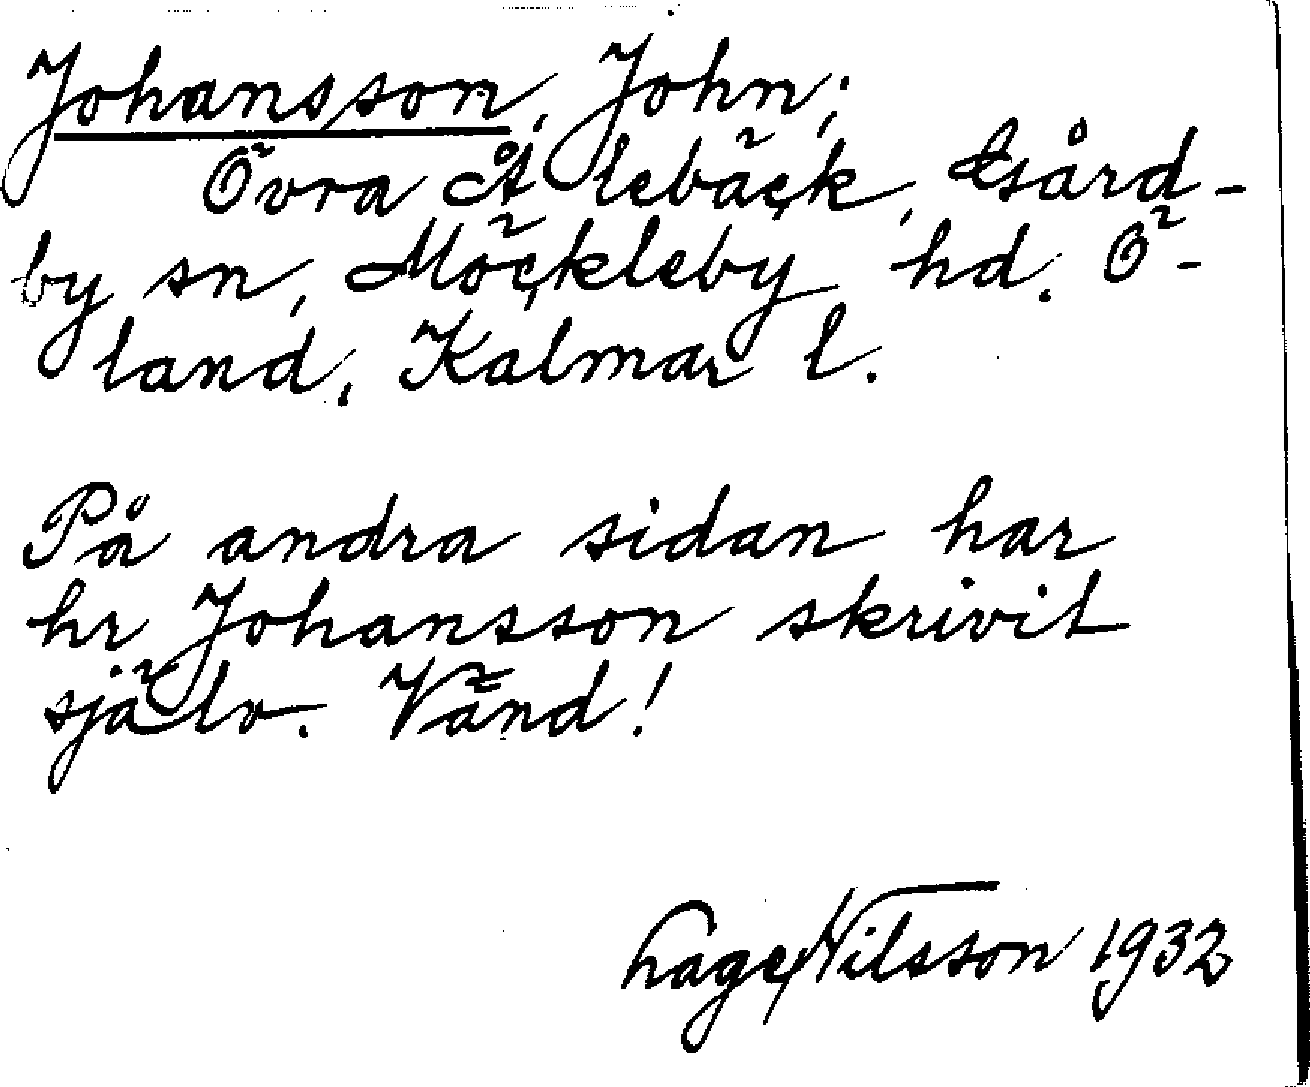 Johansson, John;
Övra Ålebäck, Gård-
by sn, Möckleby hd. Ö-
land, Kalmar l.
På andra sidan har
hr Johansson skrivit
själv. Vänd!
Nilsson 1932